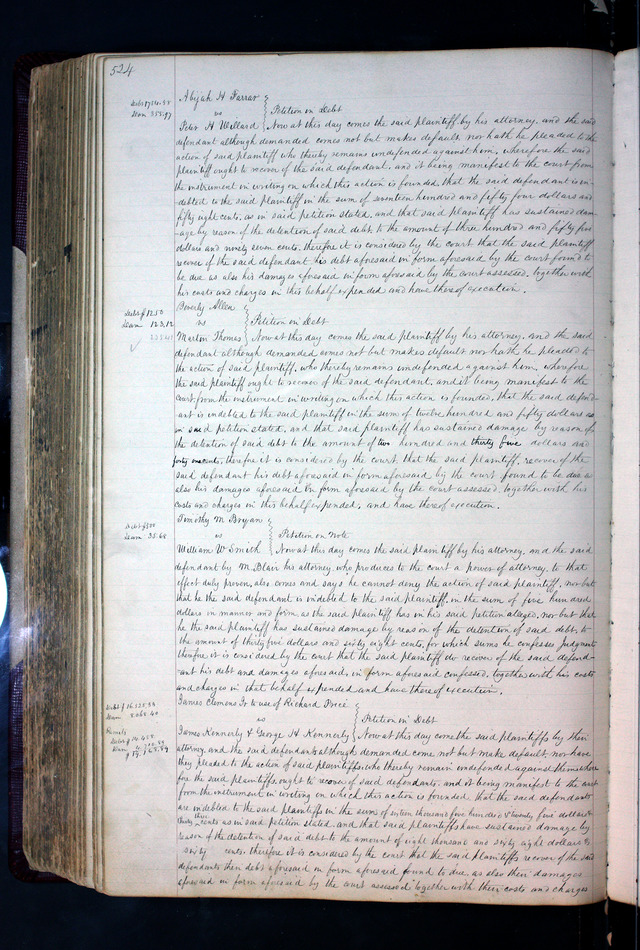 524
Debt $1754.58
Dam 355.97
Abijah H Farrar
vs } Petition in Debt
Peter H Willard Now at this day comes the said plaintiff by his attorney, and the said
defendant although demanded comes not but makes default nor hath he pleaded to the
action of said plaintiff who thereby remains undefended against him, wherefore the said
plaintiff ought to recover of the said defendant, and it being manifest to the court from
the instrument in writing on which this action is founded, that the said defendant is in-
debted to the said plaintiff in the sum of seventeen hundred and fifty four dollars and
fifty eight cents, as in said petition stated, and that said plaintiff has sustained dam-
-age by reason of the detention of said debt to the amount of three hundred and fifty five
dollars and ninety seven cents, therefore it is considered by the court that the said plaintiff
recover of the said defendant, his debt aforesaid in form aforesaid by the court found to
be due as also his damages aforesaid in form aforesaid by the court assessed, together with
his costs and charges in this behalf expended and have thereof execution.
Debt $1250
Dam
Beverly Allen
vs } Petition in Debt
Merton Thomas Now at this day comes the said plaintiff by his attorney, and the said
defendant although demanded comes not but makes default nor hath he pleaded to
the action of said plaintiff, who thereby remains undefended against him, wherefore
the said plaintiff ought to recover of the said defendant, and it being manifest to the
court from the instrument in writing on which this action is founded, that the said defend-
ant is indebted to the said plaintiff in the sum of twelve hundred and fifty dollars as
in said petition stated, and that said plaintiff has sustained damage by reason of
the detention of said debt to the amount of two hundred and thirty five dollars and
forty cents, therefore it is considered by the court that the said plaintiff, recover of the
said defendant his debt aforesaid in form aforesaid by the court found to be due as
also his damages aforesaid in form aforesaid by the court assessed, together with his
costs and charges in this behalf expended, and have thereof execution.
Debt $500
Dam 35.68
Timothy M Bryan
vs } Petition on Note
William W Smith Now at this day comes the said plaintiff by his attorney, and the said
defendant by M Blair his attorney who produces to the court a power of attorney, to that
effect duly proven, also comes and says he cannot deny the action of said plaintiff, nor but
that he the said defendant is indebted to the said plaintiff, in the sum of five hundred
dollars in manner and form, as the said plaintiff has in his said petition alleged, nor but that
he the said plaintiff has sustained damage by reason of the detention of said debt to
the amount of thirty five dollars and sixty eight cents, for which sums he confesses judgment
therefore it is considered by the court that the said plaintiff do recover of the said defend-
ant his debt and damages aforesaid, in form aforesaid confessed, together with his costs
and charges in that behalf expended and have thereof execution.
Dam 8068.60
Remits
James Clemens Jr to use of Richard Price
vs } Petition in Debt
James Kennerly & George H Kennerly Now at this day come the said plaintiffs by their
attorney, and the said defendants although demanded come not but make default, nor have
they pleaded to the action of said plaintiffs who thereby remain undefended against them where
fore the said plaintiffs, ought to recover of said defendants, and it being manifest to the court
from the instrument in writing on which this action is founded that the said defendants
are indebted to the said plaintiffs in the sum of sixteen thousand five hundred & twenty five dollars &
thirty three cents as in said petition stated, and that said plaintiffs have sustained damage by
reason of the detention of said debt to the amount of eight thousand and sixty eight dollars &
sixty cents, therefore it is considered by the court that the said plaintiffs recover of the said
defendants their debt aforesaid in form aforesaid, found to due, as also their damages
aforesaid in form aforesaid by the court assessed together with their costs and charges